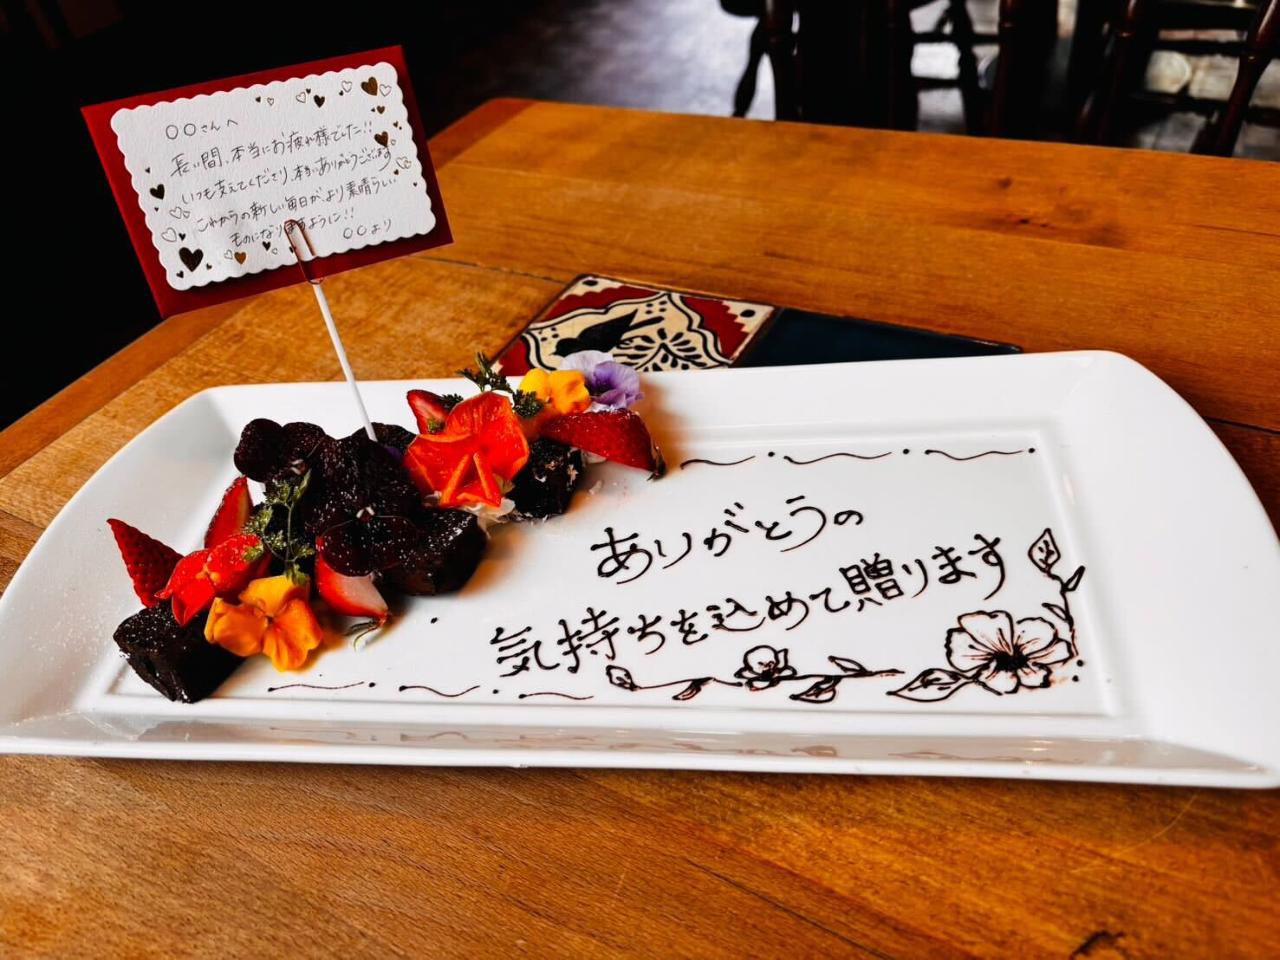 ○○さんへ
長い間、本当にお疲れ様でした!!
いつも支えてくださり、本当にありがとうございます
これからの新しい毎日が、より素晴らしい
ものになりますように!!
○○より
ありがとうの
気持ちを込めて贈ります